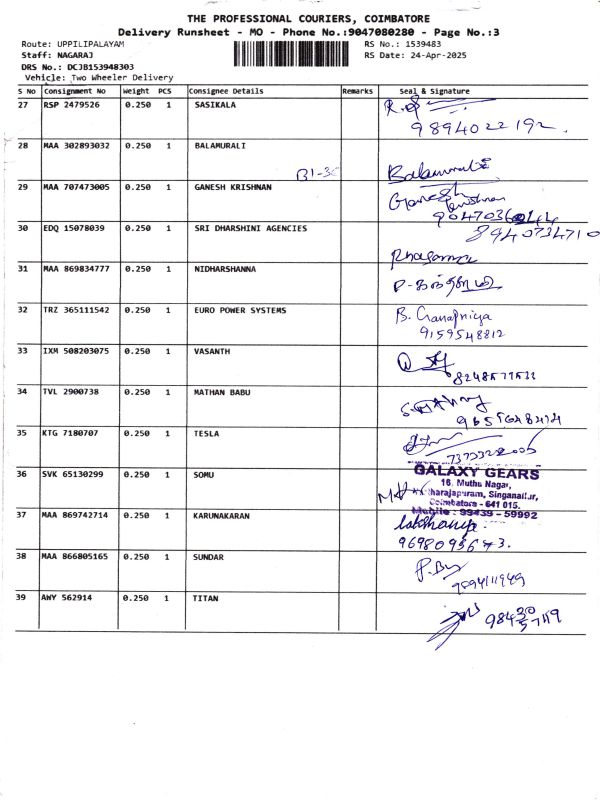 THE PROFESSIONAL COURIERS, COIMBATORE
Delivery Runsheet - MO - Phone No.:9047080280 - Page No.:3
Route: UPPILIPALAYAM RS No.: 1539483
Staff: NAGARAJ RS Date: 24-Apr-2025
DRS No.: DCJB153948303
Vehicle: Two Wheeler Delivery
S No Consignment No Weight PCS Consignee Details Remarks Seal & Signature
27 RSP 2479526 0.250 1 SASIKALA
9894022192.
28 MAA 302893032 0.250 1 BALAMURALI
Balamurali
29 MAA 707473005 0.250 1 GANESH KRISHNAN
Ganesh
Krishnan
30 EDQ 15078039 0.250 1 SRI DHARSHINI AGENCIES
8940734710
31 MAA 869834777 0.250 1 NIDHARSHANNA
32 TRZ 365111542 0.250 1 EURO POWER SYSTEMS
B.
9159548812
33 IXM 508203075 0.250 1 VASANTH
34 TVL 2900738 0.250 1 MATHAN BABU
35 KTG 7180707 0.250 1 TESLA
36 SVK 65130299 0.250 1 SOMU
GALAXY GEARS
16, Muthu Nagar,
Singanallur,
Coimbatore - 641 015.
Mobile : 99439 - 59992
37 MAA 869742714 0.250 1 KARUNAKARAN
38 MAA 866805165 0.250 1 SUNDAR
39 AWY 562914 0.250 1 TITAN